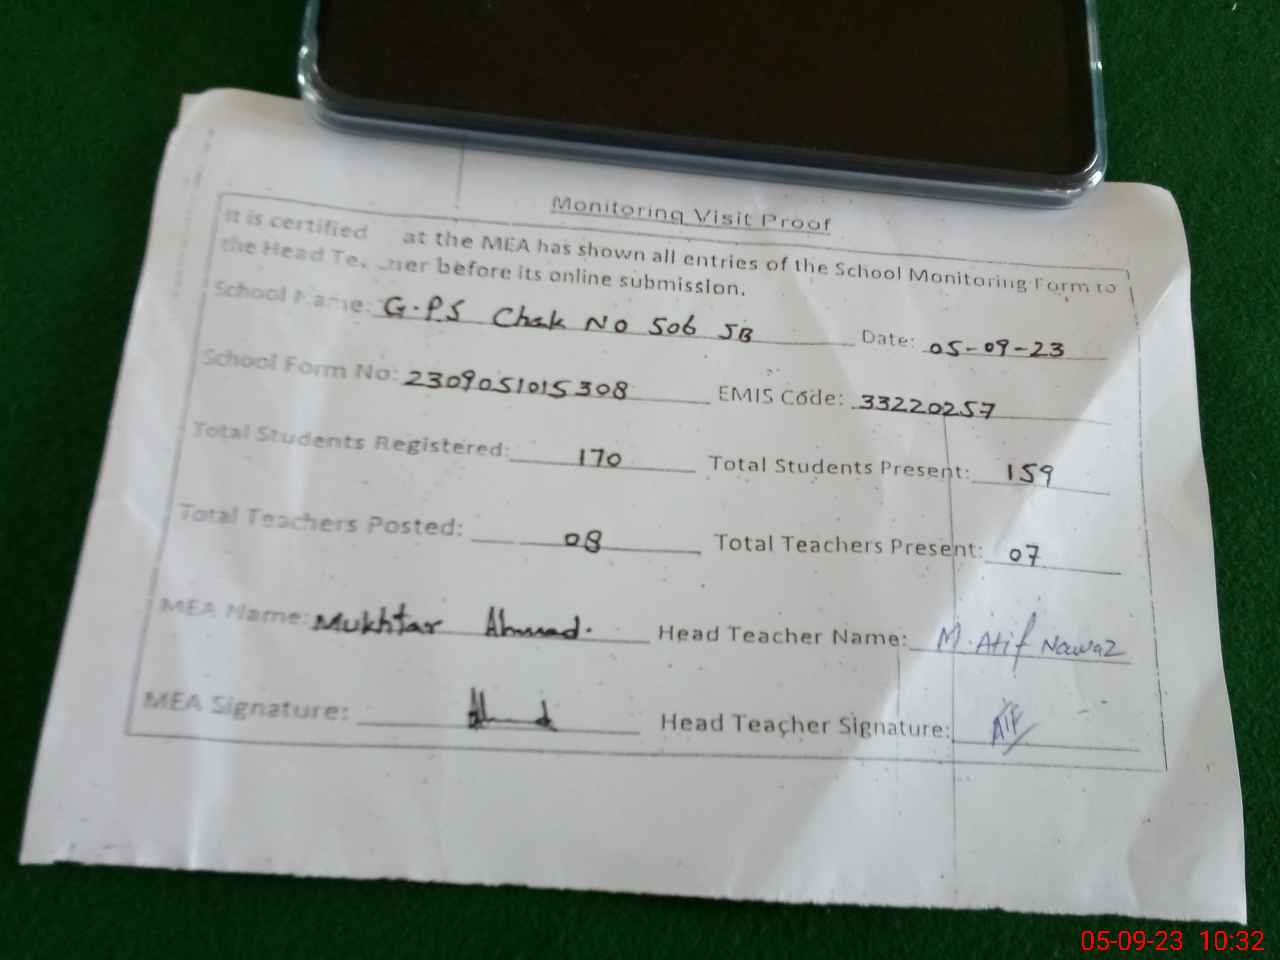 Monitoring Visit Proof
It is certified at the MEA has shown all entries of the School Monitoring Form to
the Head Te ner before its online submission.
School Name: G.P.S Chak No 506 JB Date: 05-09-23
School Form No: 2309051015308 EMIS Code: 33220257
Total Students Registered: 170 Total Students Present: 159
Total Teachers Posted: 08 Total Teachers Present: 07
MEA Name: Mukhtar Ahmad. Head Teacher Name: M. Atif Nawaz
MEA Signature: Head Teacher Signature: Atif
05-09-23 10:32